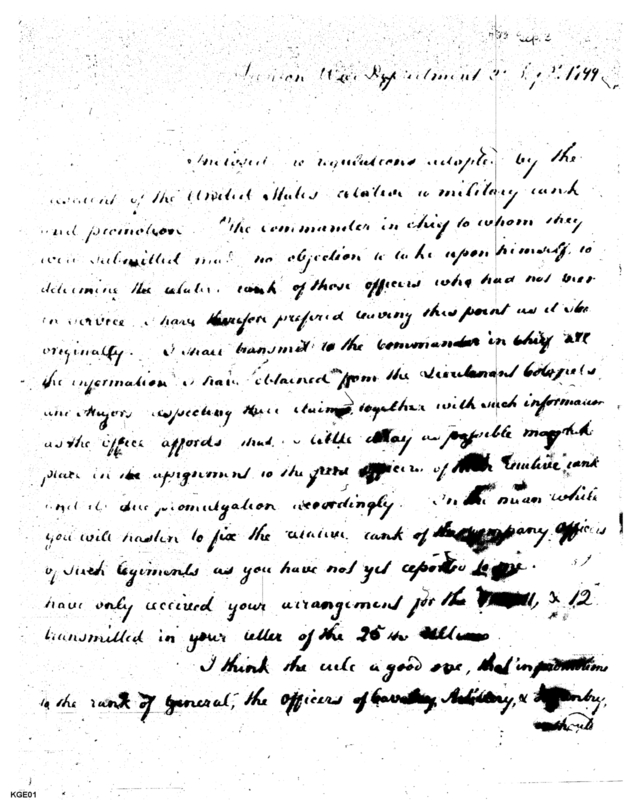 Sep. 2
Trenton War Department 2d Sept. 1799
Inclosed is regulations adopted by the
President of the United States relative to military rank
and promotion. The commander in chief to whom they
were submitted no objection to take upon himself, to
determine the relative rank of those officers who had not been
in service I have therefore prefered leaving this point as it
originally. I shall transmit to the Commander in Chief all
the information I have obtained from the Lieutenant Colonels
and Majors respecting their claims, together with such information
as the office affords that as little delay as possible may take
place in the assignment to the officers of their relative rank
and its due promulgation accordingly. In the mean while
you will hasten to fix the relative rank of the company officers
of such Regiments as you have not yet reported to me. I
have only received your arrangement for the & 12
transmitted in your letter of the 25th Ultimo
I think the rule a good one, that in promotions
to the rank of General, the officers of Cavalry, Artillery, & Infantry,
should
KGE01